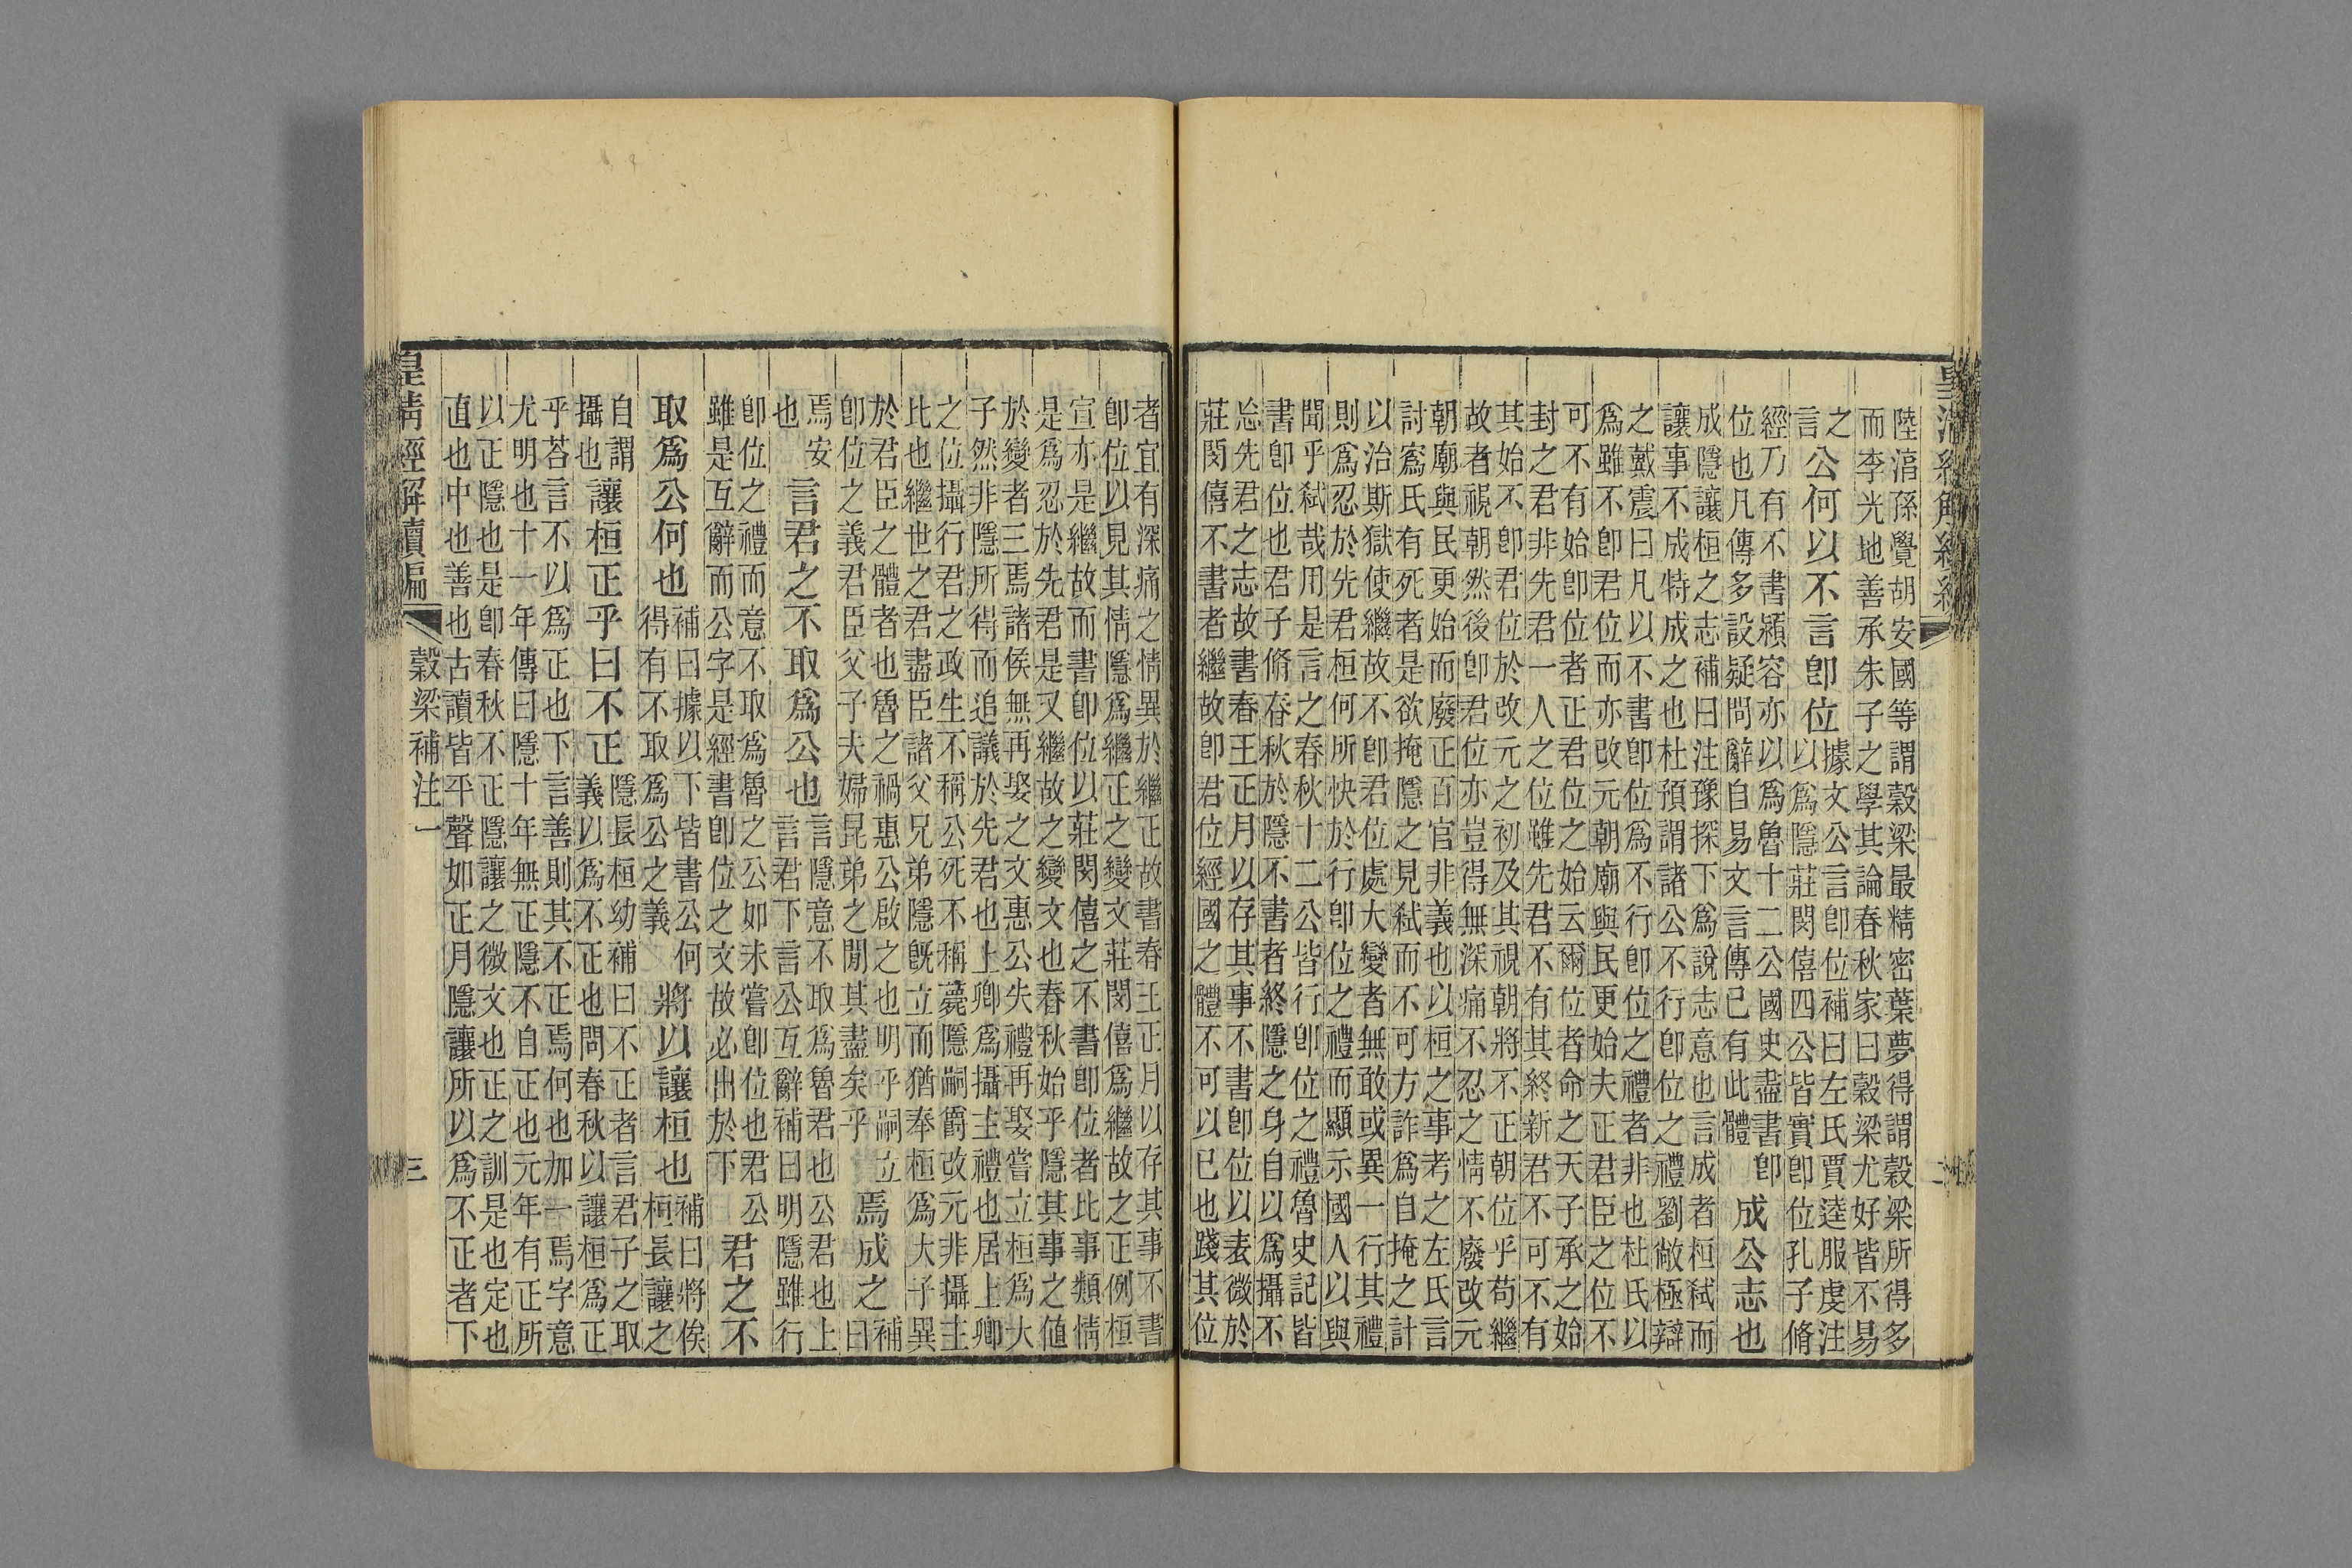 陸淳孫覺胡安國等謂穀梁最精密葉夢得謂穀梁所得多
而李光地善承朱子之學其論春秋家曰穀梁尤好皆不易
之言公何以不言卽位據文公言卽位補曰左氏賈逵服虔注
以爲隱莊閔僖四公皆實卽位孔子脩
經乃有不書潁容亦以爲魯十二公國史盡書卽
位也凡傳多設疑問辭自易文言傳已有此體成公志也
成隱讓桓之志補曰注豫探下爲說志意也言成者桓弒而
讓事不成特成之也杜預謂諸公不行卽位之禮劉敞極辯
之戴震曰凡以不書卽位爲不行卽位之禮者非也杜氏以
爲雖不卽君位而亦改元朝廟與民更始夫正君臣之位不
可不有始卽位者正君位之始云爾位者命之天子承之始
封之君非先君一人之位雖先君不有其終新君不可不有
其始不卽君位於改元之初及其視朝將不正朝位乎苟繼
故者視朝然後卽君位亦豈得無深痛不忍之情不廢改元
朝廟與民更始而廢正百官非義也以桓之事考之左氏言
討寪氏有死者是欲掩隱之見弒而不可方詐爲自掩之計
以治斯獄使繼故不卽君位處大變者無敢或異一行其禮
則爲忍於先君桓何所快於行卽位之禮而顯示國人以與
聞乎弒哉用是言之春秋十二公皆行卽位之禮魯史記皆
書卽位也君子脩春秋於隱不書者終隱之身自以爲攝不
忘先君之志故書春王正月以存其事不書卽位以表微於
莊閔僖不書者繼故卽君位經國之體不可以已也踐其位
者宜有深痛之情異於繼正故書春王正月以存其事不書
卽位以見其情隱爲繼正之變文莊閔僖爲繼故之正例桓
宣亦是繼故而書卽位以莊閔僖之不書卽位者比事類情
是爲忍於先君是又繼故之變文也春秋始乎隱其事之値
於變者三焉諸侯無再娶之文惠公失禮再娶嘗立桓爲大
子然非隱所得而追議於先君也上卿爲攝主禮也居上卿
之位攝行君之政生不稱公死不稱薨隱嗣爵改元非攝主
比也繼世之君盡臣諸父兄弟隱旣立而猶奉桓爲大子異
於君臣之體者也魯之禍惠公啟之也明乎嗣立
卽位之義君臣父子夫婦昆弟之閒其盡矣乎焉成之補曰
焉安也言君之不取爲公也言隱意不取爲魯君也公君也上
言君下言公互辭補曰明隱雖行
卽位之禮而意不取爲魯之公如未嘗卽位也君公
雖是互辭而公字是經書卽位之文故必出於下君之不
取爲公何也補曰據以下皆書公何
得有不取爲公之義將以讓桓也補曰將俟
桓長讓之
自謂攝也讓桓正乎曰不正隱長桓幼補曰不正者言君子之取
義以爲不正也問春秋以讓桓爲正
乎荅言不以爲正也下言善則其不正焉何也加一焉字意
尤明也十一年傳曰隱十年無正隱不自正也元年有正所
以正隱也是卽春秋不正隱讓之微文也正之訓是也定也
直也中也善也古讀皆平聲如正月隱讓所以爲不正者下
皇清經解續編 穀梁補注一 三